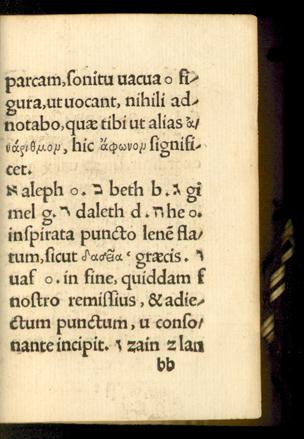 parcam, sonitu uacua o fi/
gura, ut uocant, nihili ad/
notabo, quæ tibi ut alias ἀ/
νάριθμον, hic ἄφωνον signifi
cet.
א aleph o. ב beth b. ג gi
mel g. ד daleth d. ה he o.
inspirata puncto lenẽ fla/
tum, sicut δασεῖα ʽ græcis. ו
uaf o. in fine, quiddam f
nostro remissius, & adie/
ctum punctum, u conso/
nante incipit. ז zain z lan
bb